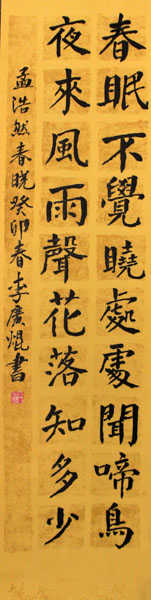 春眠不覺曉處處聞啼鳥
夜來風雨聲花落知多少
孟浩然春曉癸卯春李廣焜書